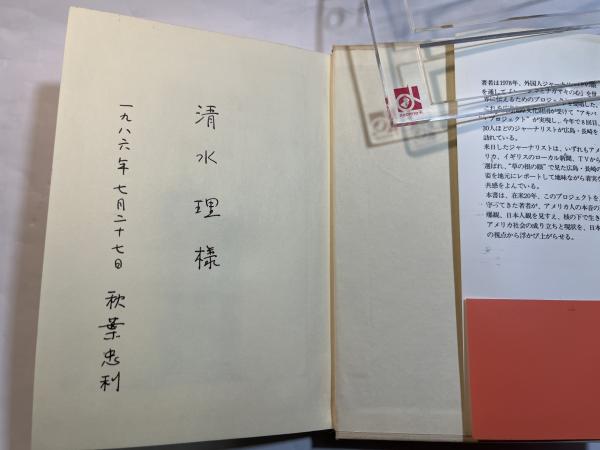 清水理様
一九八六年七月二十七日 秋葉忠利
著者は1978年、外国人ジャーナリ
を通して「ヒロシマ・ナガサキの心」を世
界に伝えるためのプロジェクトを
受けて“アキバ
プロジェクト”が実現し、今年で8回目、
30人ほどのジャーナリストが広島・長崎を
訪れている。
来日したジャーナリストは、いずれもアメ
リカ、イギリスのローカル新聞、TVから
選ばれ、“草の根の眼”で見た広島・長崎の
姿を地元にレポートして地味ながら着実な
共感をよんでいる。
本書は、在米20年、このプロジェクトを見
守ってきた著者が、アメリカ人の本音の
爆観、日本人観を見すえ、核の下で生き
アメリカ社会の成り立ちと現状を、日本
の視点から浮かび上がらせる。